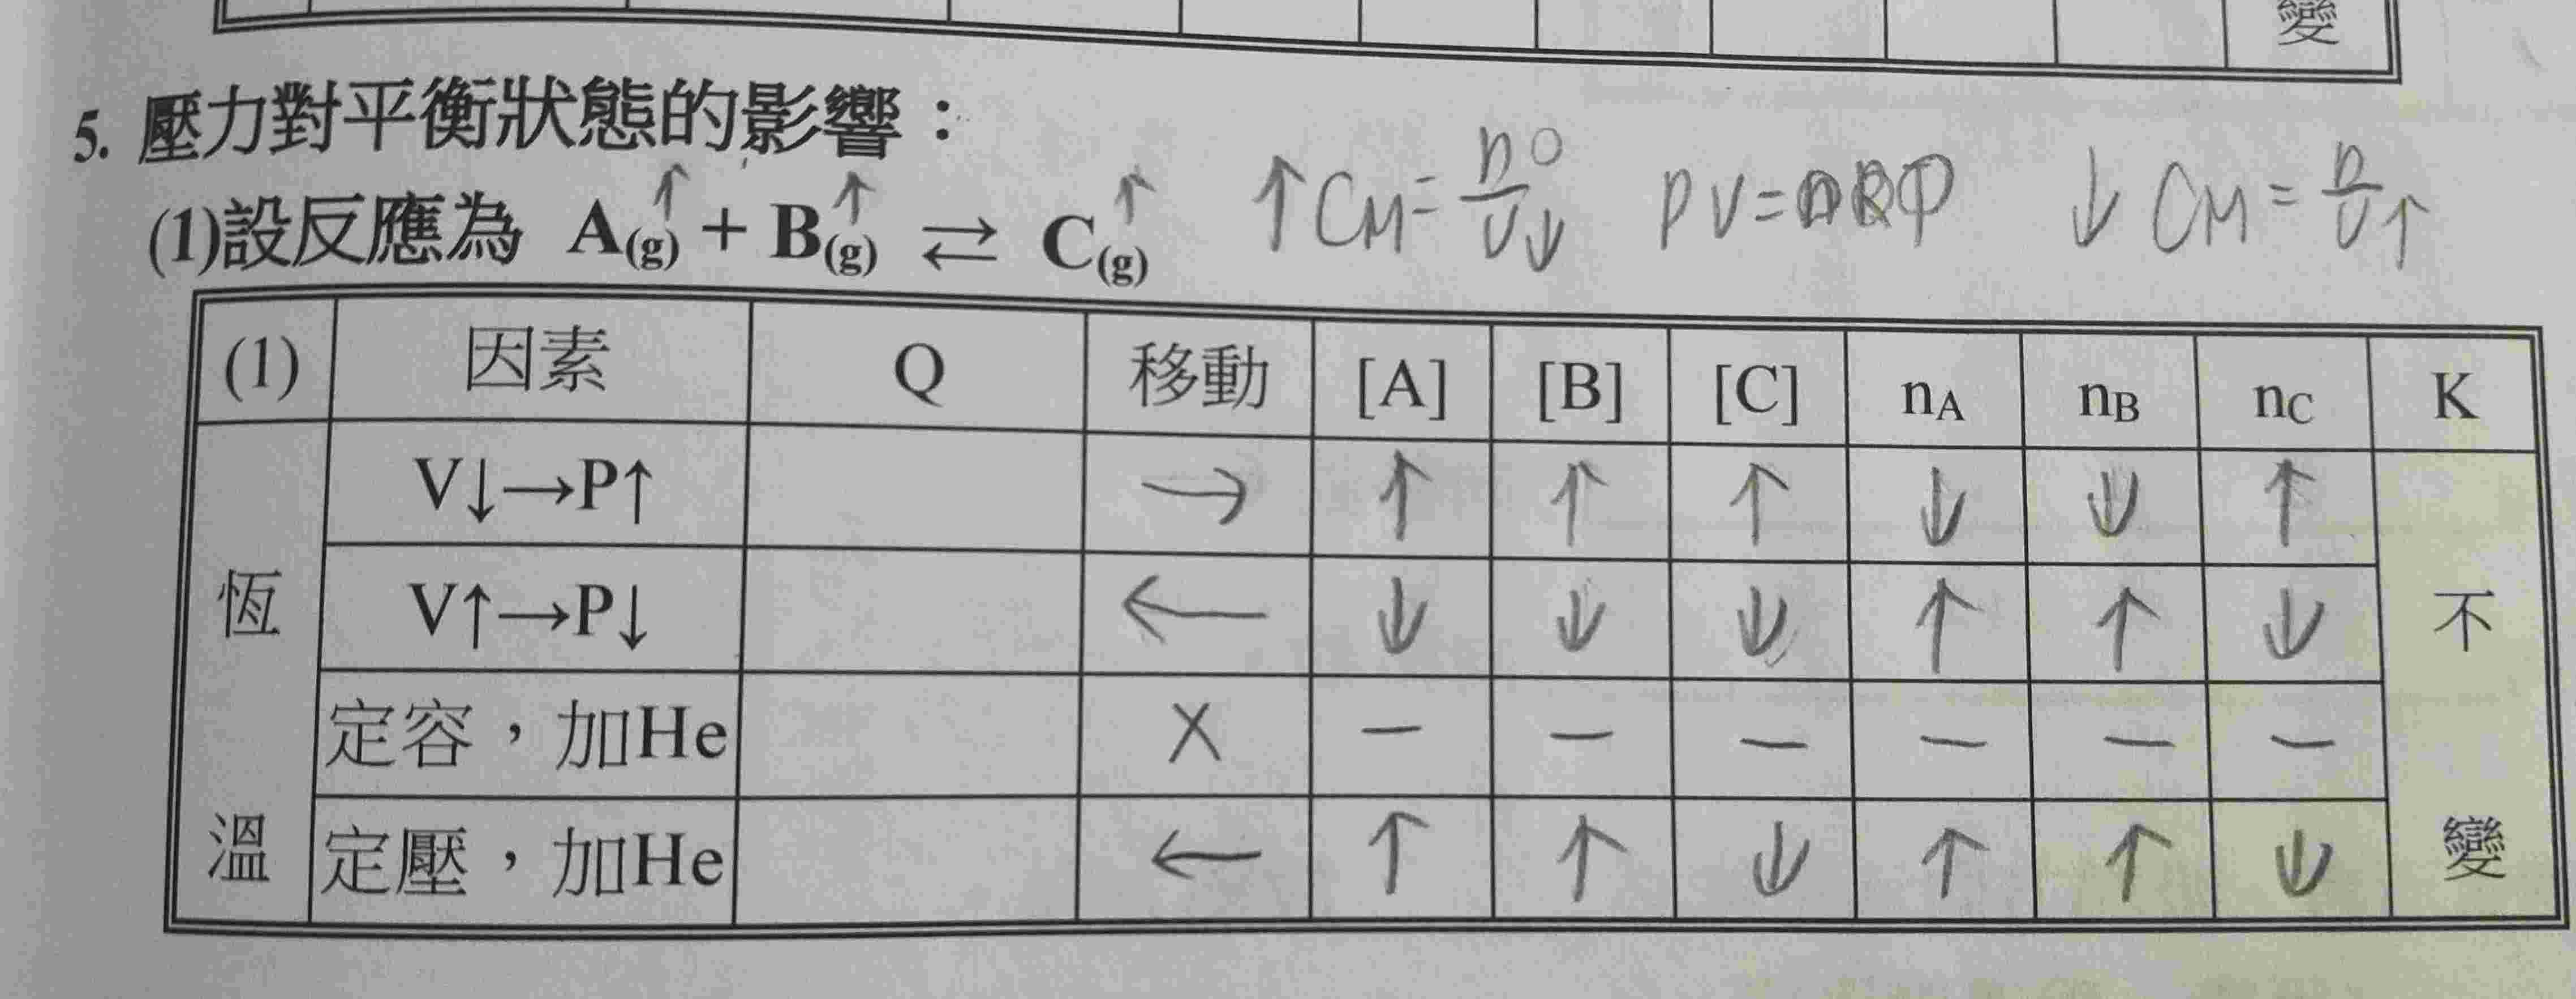 變
5. 壓力對平衡狀態的影響：
(1)設反應為 A(g)↑ + B(g)↑ ⇄ C(g)↑ ↑CM=n/V↓ PV=nRT ↓CM=n/V↑
(1) 因素 Q 移動 [A] [B] [C] nA nB nC K
V↓→P↑ → ↑ ↑ ↑ ↓ ↓ ↑
恆 V↑→P↓ ← ↓ ↓ ↓ ↑ ↑ ↓ 不
定容，加He X — — — — — —
溫 定壓，加He ← ↑ ↑ ↓ ↑ ↑ ↓ 變